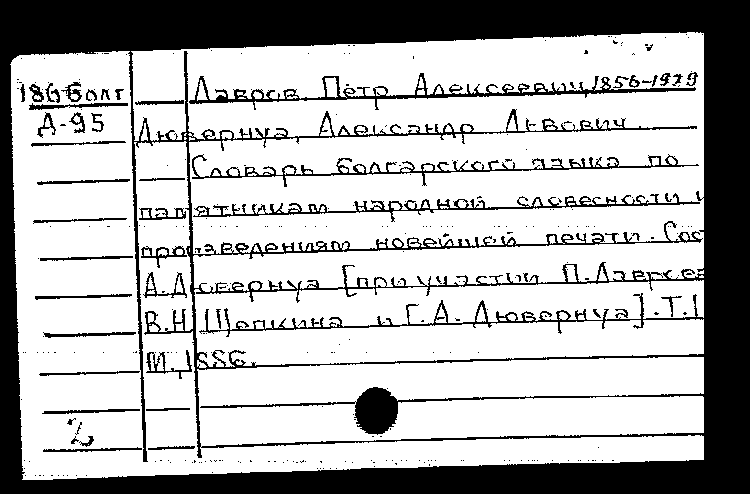 18б Болг Лавров Пётр Алексеевич, 1856-1929
Д-95 Дювернуа, Александр Львович.
Словарь болгарского языка по
памятникам народной словесности и
произведениям новейшей печати. Сос
А. Дювернуа [при участии П.
В.Н. Щепкина и Г.А. Дювернуа]. Т.1
М., 1886.
2